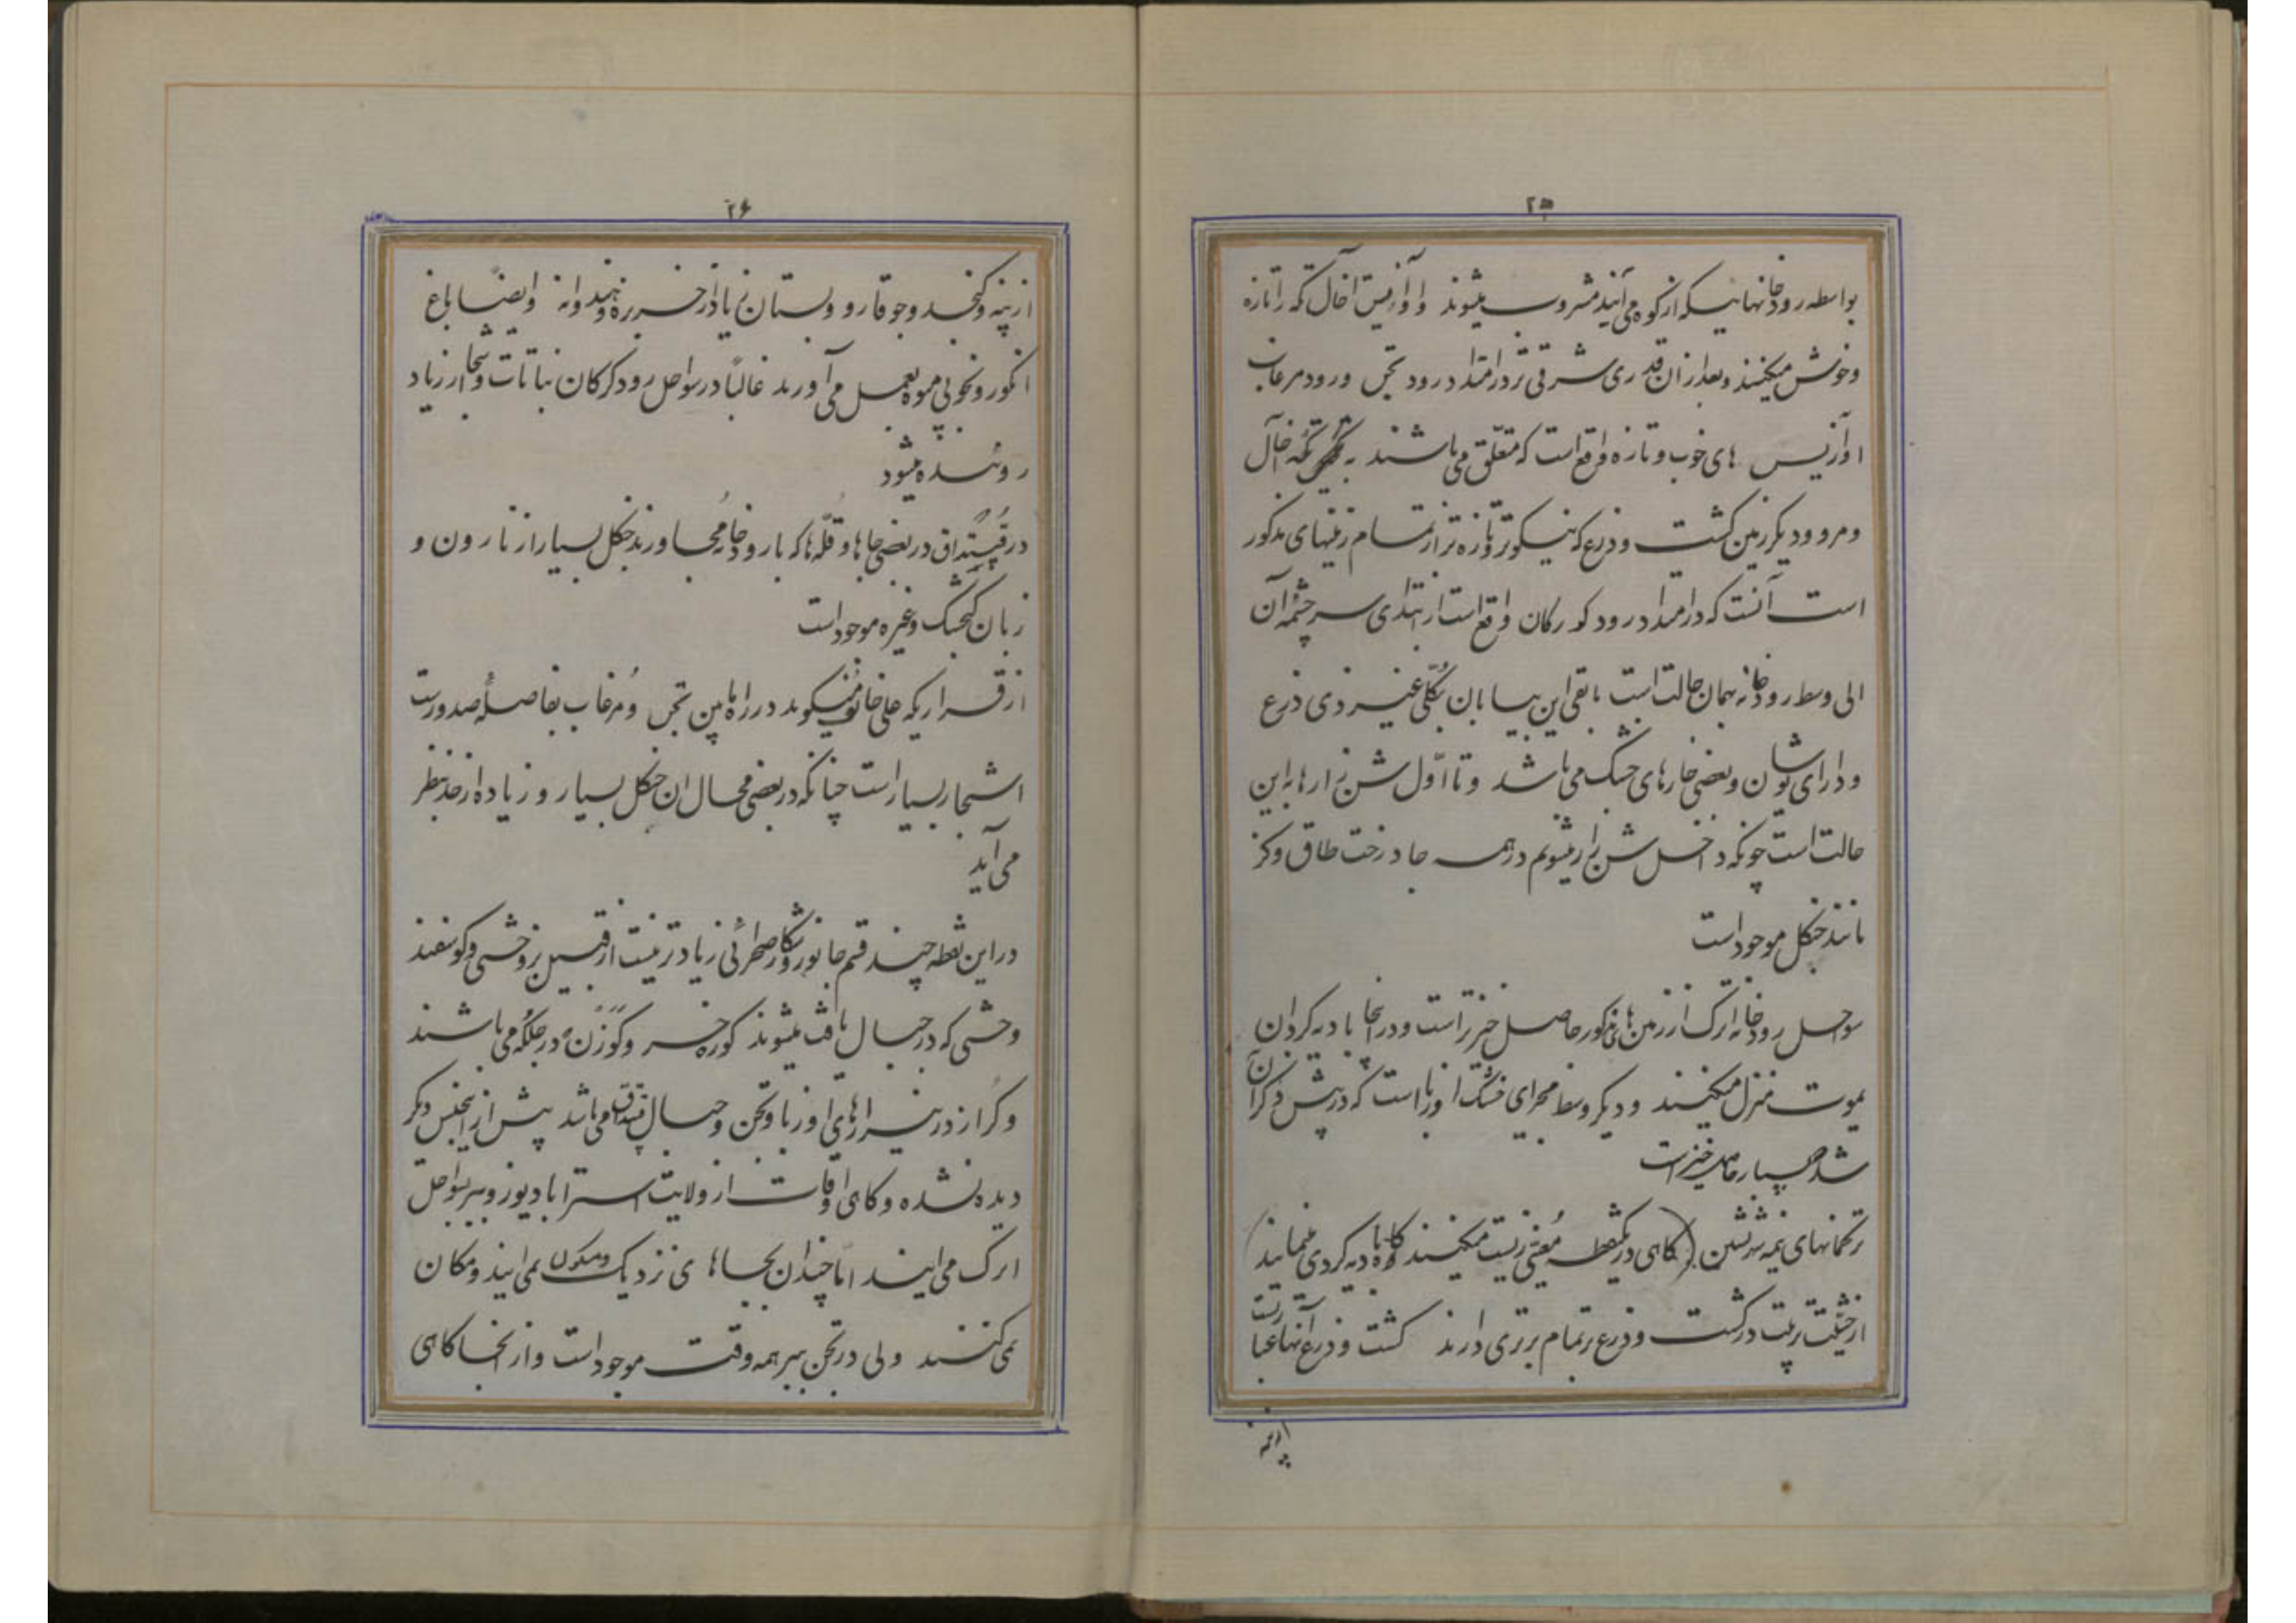 ۲۵
بواسطه رودخانهائیکه از کوه می‌آیند مشروب میشوند و اوآزیس آخال تکه را تازه
وخوش میکنند و بعد از آن قدری شرقی تر در امتداد رود تجن و رود مرغاب
اوآزیس های خوب و تازه واقع است که متعلق می باشند به تکه آخال
و مرو و دیگر زمین کشت و ذرع که نیکوتر و تازه تر از تمام زمینهای مذکور
است آنست که در امتداد رود کورکان واقع است از ابتدای سرچشمه آن
الی وسط رودخانه بهمان حالت است باقی این بیابان بکلی غیر ذی ذرع
و دارای بوشان و بعضی خارهای خشک می باشد و تا اول شن زارها به این
حالت است چونکه داخل شن زار میشویم در همه جا درخت طاق و گز
مانند جنگل موجود است
سواحل رودخانه اترک از زمین های مذکور حاصل خیزتر است و در آنجا بادیه گردان
یموت منزل میکنند و دیگر وسط مجرای خشک اوزبا است که در پیش ذکر آن
شد بسیار حاصل خیز است
ترکمانهای نیمه شهرنشین (گاهی در یکنقطه معینی زیست میکنند گاه بادیه گردی مینمایند)
از حیثیت تربیت در کشت و ذرع بر تمام برتری دارند کشت و ذرع آنها عبارتست
۲۶
از پنبه و کنجد و جو قارو و بستان زیاد از خربزه و هندوانه و ایضاً باغ
انگور و بخوبی میوه بعمل می‌آورند غالباً در سواحل رود گرگان نباتات و اشجار زیاد
روئیده میشود
در قپیتداق در بعضی جاها و قله ها که با رودخانه مجاورند جنگل بسیار از نارون و
زبان گنجشک و غیره موجود است
از قراریکه علی خانوف میگوید در راه مابین تجن و مرغاب بفاصله صد ورست
اشجار بسیار است چنانکه در بعضی محال ان جنگل بسیار و زیاده از حد بنظر
می آید
در این نقطه چند قسم جانور و شکار صحرائی زیادتر نیست از قبیل بز وحشی و گوسفند
وحشی که در جبال یافت میشوند گوره خر و گوزن در جلگه می باشند
و گراز در نیزارهای اوزبا و تجن و جبال قپیتداق می باشد پیش از اینجنس دیگر
دیده نشده و گاهی اوقات از ولایت استراباد یوز و ببر بسواحل
اترک می آیند اما چندان بجاهای نزدیک و مسکون نمی آیند و مکان
نمی کنند ولی در تجن ببر همه وقت موجود است و از آنجا گاهی